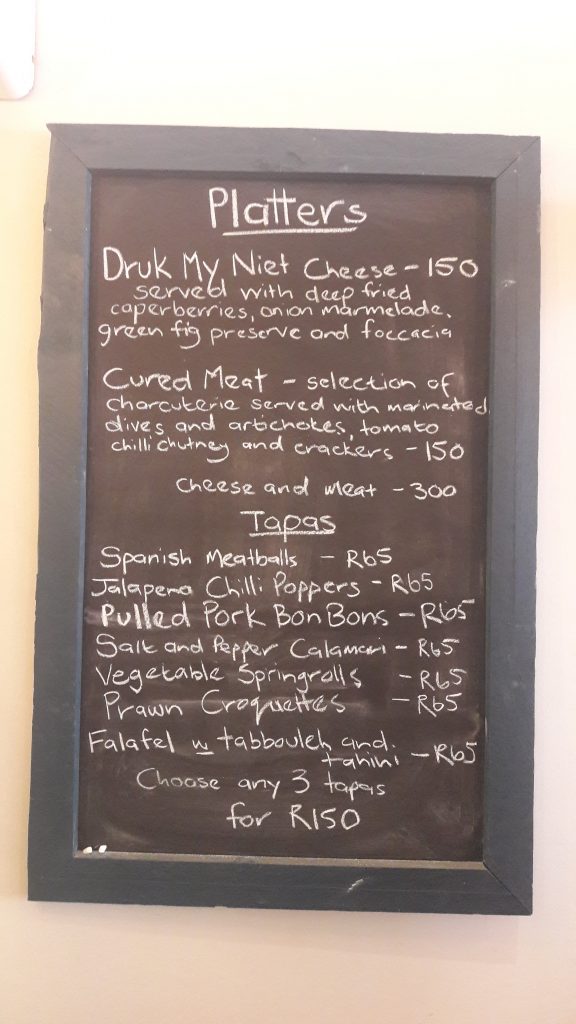 Platters
Druk My Niet Cheese - 150
served with deep fried
caperberries, onion marmelade,
green fig preserve and foccacia
Cured Meat - selection of
charcuterie served with marinated
olives and artichokes, tomato
chilli chutney and crackers - 150
cheese and meat - 300
Tapas
Spanish Meatballs - R65
Jalapeno Chilli Poppers - R65
Pulled Pork Bon Bons - R65
Salt and Pepper Calamari - R65
Vegetable Springrolls - R65
Prawn Croquettes - R65
Falafel w tabbouleh and
tahini - R65
Choose any 3 tapas
for R150